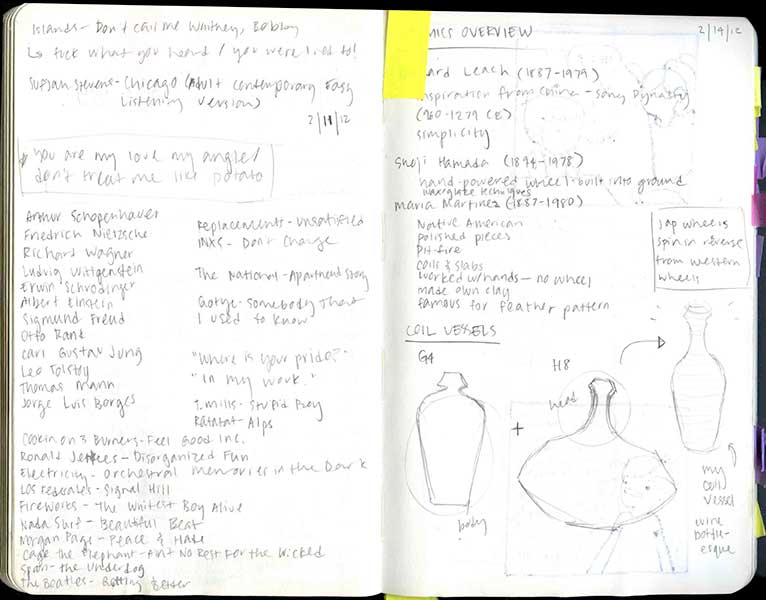 Islands - Don't call me Whitney, Bobby
↳ fuck what you heard / you were lied to!
Sufjan Stevens - Chicago (Adult Contemporary Easy
Listening Version)
2/11/12
you are my love my angle/
don't treat me like potato
Arthur Schopenhauer
Friedrich Nietzsche
Richard Wagner
Ludwig Wittgenstein
Erwin Schrodinger
Albert Einstein
Sigmund Freud
Otto Rank
Carl Gustav Jung
Leo Tolstoy
Thomas Mann
Jorge Luis Borges
Replacements - Unsatisfied
INXS - Don't Change
The National - Apartment Story
Gotye - Somebody That
I used to know
"Where is your pride?"
"In my work."
T. Mills - Stupid Boy
Ratatat - Alps
Cookin on 3 Burners - Feel Good Inc.
Ronald Jenkees - Disorganized Fun
Electricity - Orchestral Memories in the Dark
Los Federales - Signal Hill
Fireworks - The Whitest Boy Alive
Nada Surf - Beautiful Beat
Morgan Page - Peace & Hate
Cage the Elephant - Ain't No Rest For the Wicked
Spoon - the Underdog
The Beatles - Getting Better
MICS OVERVIEW
2/14/12
ard Leach (1887-1979)
inspiration from China - Song Dynasty
(960-1279 CE)
simplicity
Shoji Hamada (1894-1978)
hand-powered wheel - built into ground
wax/glaze techniques
Maria Martinez (1887-1980)
Native American
polished pieces
pit-fire
coils & slabs
worked w/hands - no wheel
made own clay
famous for feather pattern
Jap wheels
spin in reverse
from western
wheels
COIL VESSELS
G4
H8
head
+
body
my
coil
vessel
wine
bottle-
esque